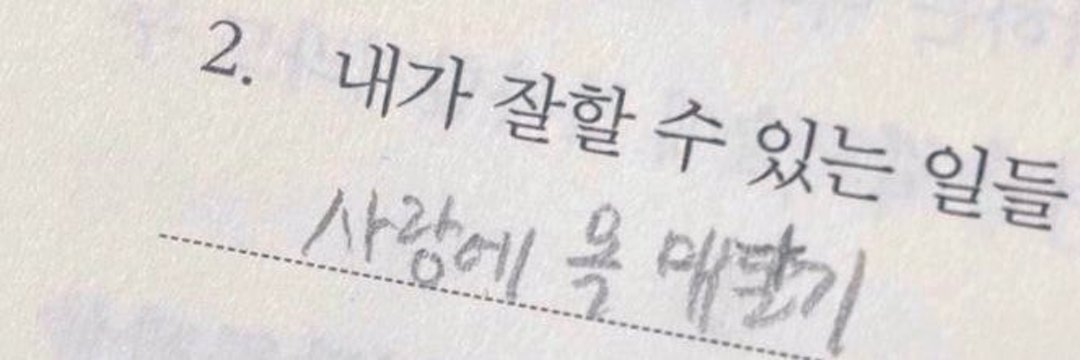 2. 내가 잘할 수 있는 일들
사랑에 목 매달기